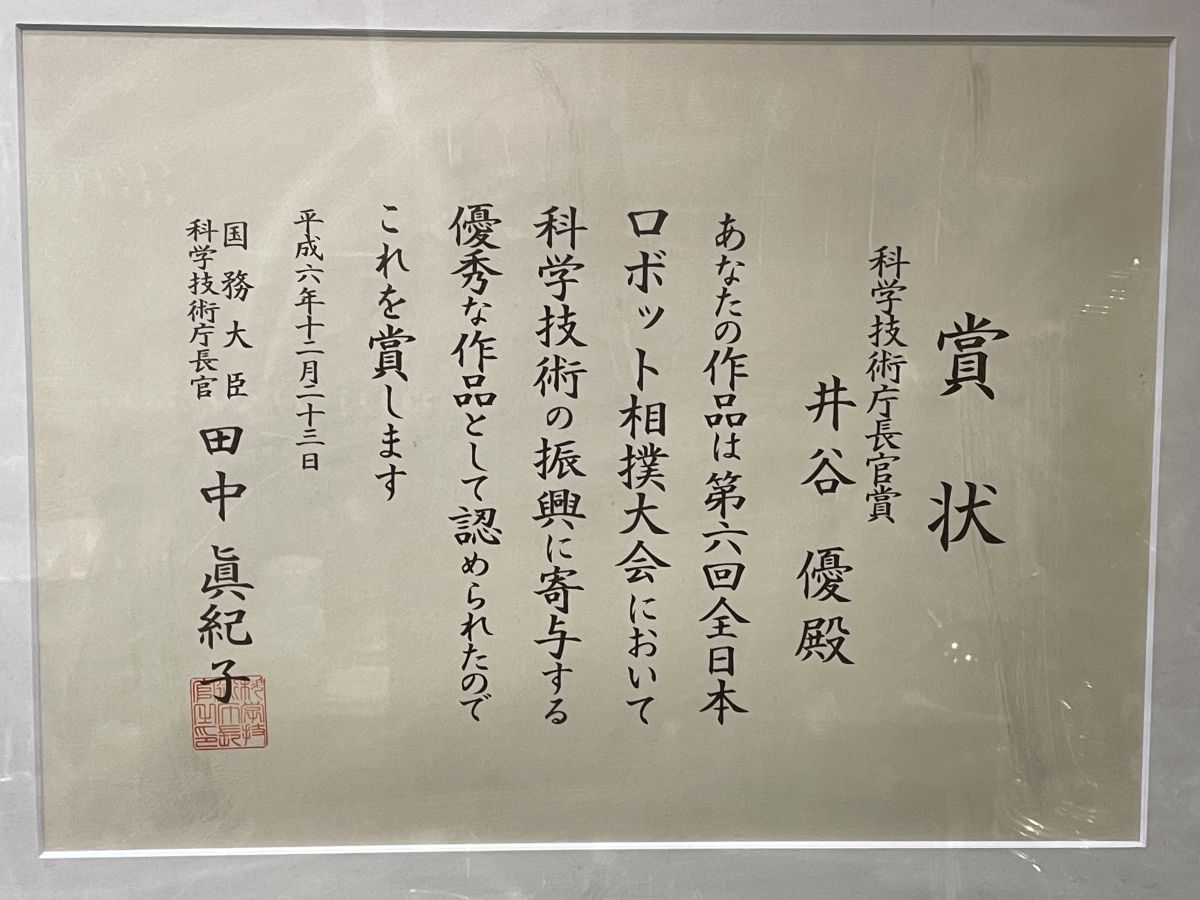 賞状
科学技術庁長官賞
井谷 優殿
あなたの作品は第六回全日本
ロボット相撲大会において
科学技術の振興に寄与する
優秀な作品として認められたので
これを賞します
平成六年十二月二十三日
国務大臣
科学技術庁長官
田中 眞紀子
科学技
術庁長
官之印